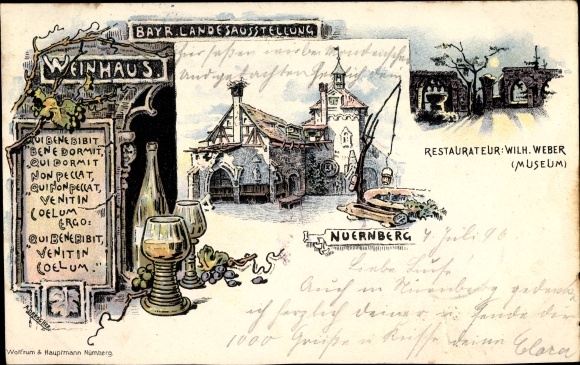 BAYR. LANDESAUSSTELLUNG
WEINHAUS
QUI BENE BIBIT,
BENE DORMIT,
QUI DORMIT
NON PECCAT,
QUI NON PECCAT,
VENIT IN
COELUM
ERGO:
QUI BENE BIBIT,
VENIT IN
COELUM.
Hier saßen wir bei
RESTAURATEUR: WILH. WEBER
(MUSEUM)
NUERNBERG
4 Juli 96
Liebe
Auch in Nürnberg
ich herzlich deiner u. sende dir
1000 Grüße u Küsse deine Clara
Wolfrum & Hauptmann Nürnberg.